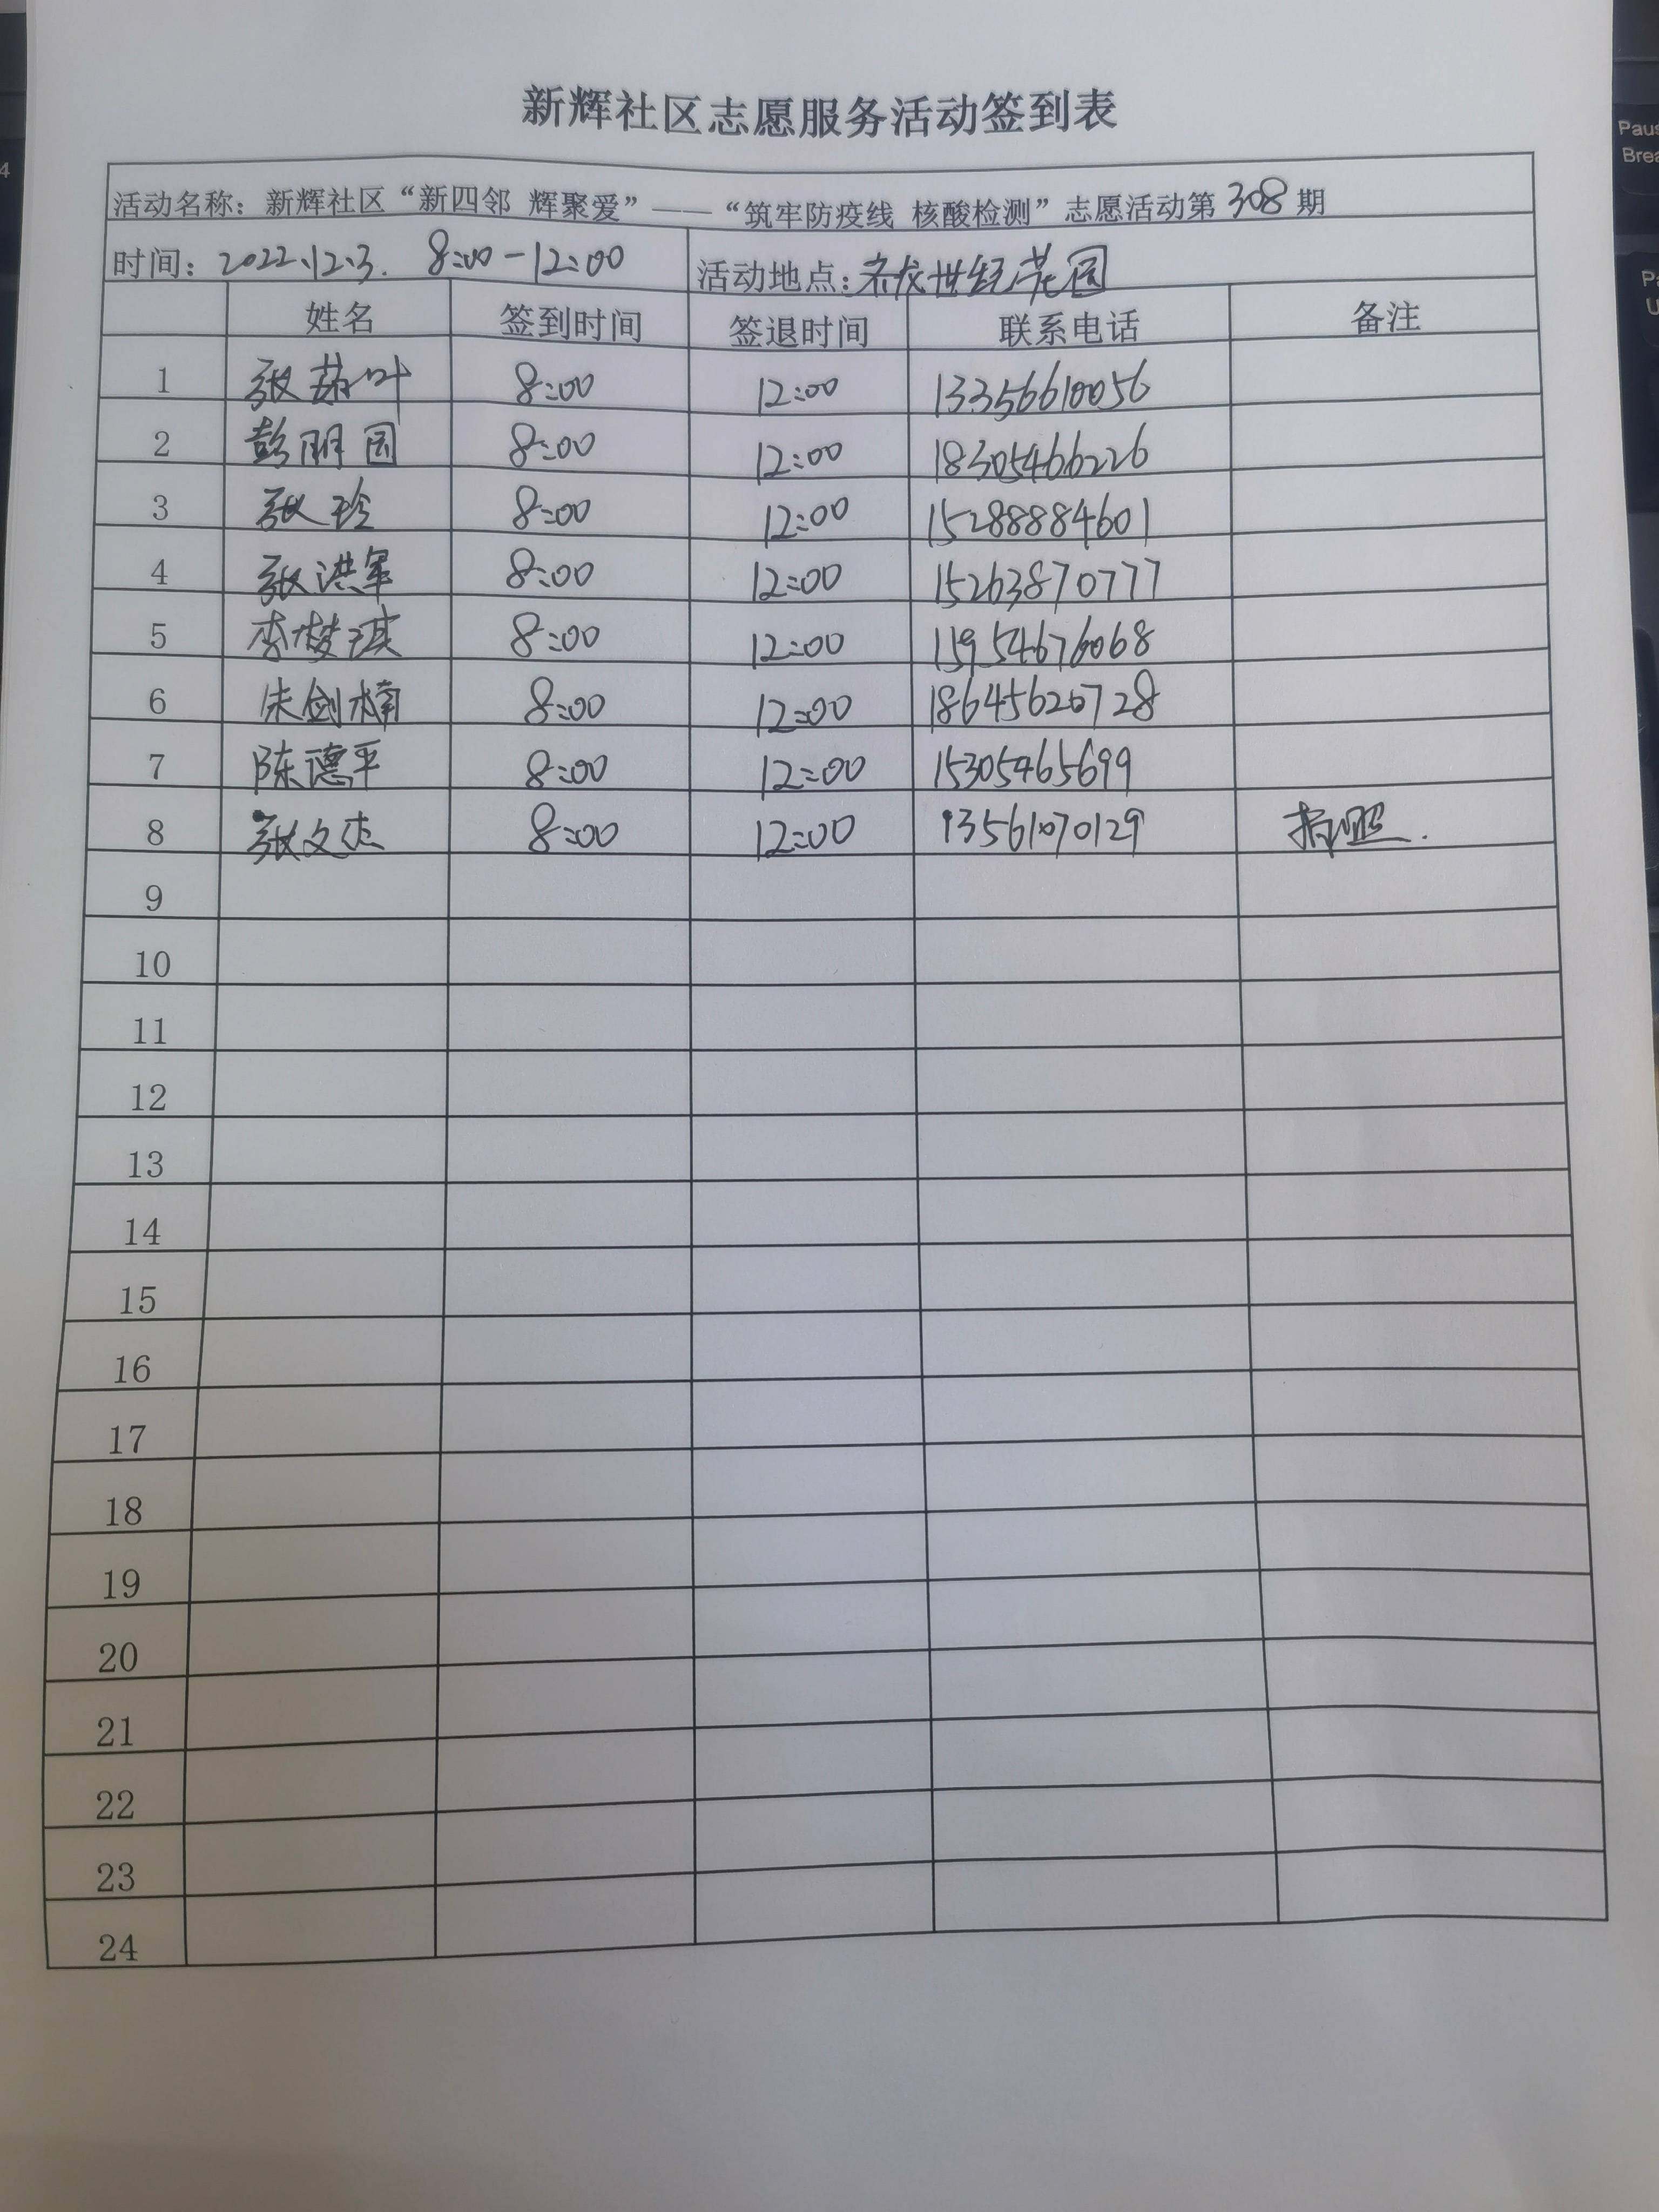 新辉社区志愿服务活动签到表
活动名称：新辉社区“新四邻 辉聚爱”——“筑牢防疫线 核酸检测”志愿活动第308期
时间：2022.12.3. 8:00-12:00 活动地点：世纪花园
姓名 签到时间 签退时间 联系电话 备注
1 张荷叶 8:00 12:00 13356610056
2 彭朋园 8:00 12:00 18305466226
3 张珍 8:00 12:00 15288884601
4 张洪军 8:00 12:00 15263870777
5 李梦琪 8:00 12:00 15954676068
6 朱剑楠 8:00 12:00 18645620728
7 陈德平 8:00 12:00 15305465699
8 张文杰 8:00 12:00 13561070129 拍照.
9
10
11
12
13
14
15
16
17
18
19
20
21
22
23
24